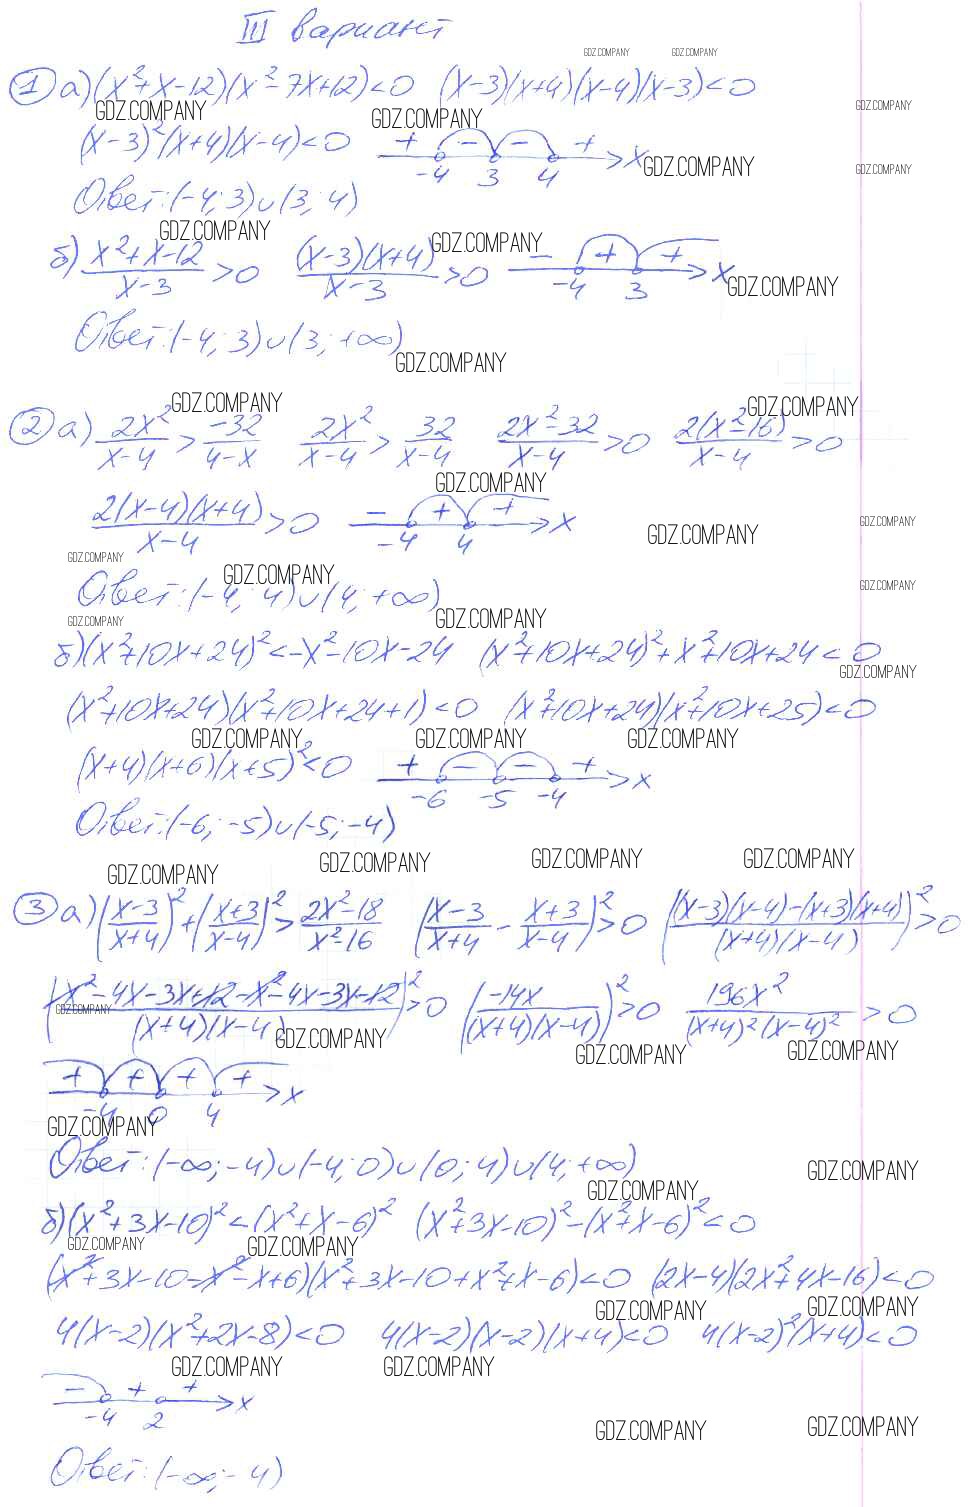 III вариант
GDZ.COMPANY GDZ.COMPANY
① а) (x²+x-12)(x²-7x+12)<0 (x-3)(x+4)(x-4)(x-3)<0
GDZ.COMPANY GDZ.COMPANY GDZ.COMPANY
(x-3)²(x+4)(x-4)<0 + - - + x
-4 3 4 GDZ.COMPANY GDZ.COMPANY
Ответ: (-4; 3)∪(3; 4)
GDZ.COMPANY GDZ.COMPANY
б) (x²+x-12)/(x-3)>0 ((x-3)(x+4))/(x-3)>0 - + + x
-4 3 GDZ.COMPANY
Ответ: (-4; 3)∪(3; +∞)
GDZ.COMPANY
GDZ.COMPANY GDZ.COMPANY
② а) 2x²/(x-4) > -32/(4-x) 2x²/(x-4) > 32/(x-4) (2x²-32)/(x-4)>0 2(x²-16)/(x-4)>0
GDZ.COMPANY
2(x-4)(x+4)/(x-4)>0 - + + x
-4 4 GDZ.COMPANY GDZ.COMPANY
GDZ.COMPANY GDZ.COMPANY GDZ.COMPANY
Ответ: (-4; 4)∪(4; +∞)
GDZ.COMPANY GDZ.COMPANY
б) (x²+10x+24)²<-x²-10x-24 (x²+10x+24)²+x²+10x+24<0
GDZ.COMPANY
(x²+10x+24)(x²+10x+24+1)<0 (x²+10x+24)(x²+10x+25)<0
GDZ.COMPANY GDZ.COMPANY GDZ.COMPANY
(x+4)(x+6)(x+5)²<0 + - - + x
-6 -5 -4
Ответ: (-6; -5)∪(-5; -4)
GDZ.COMPANY GDZ.COMPANY GDZ.COMPANY GDZ.COMPANY
③ а) ((x-3)/(x+4))²+((x+3)/(x-4))²>(2x²-18)/(x²-16) ((x-3)/(x+4) - (x+3)/(x-4))²>0 (((x-3)(x-4)-(x+3)(x+4))/((x+4)(x-4)))²>0
((x²-4x-3x+12-x²-4x-3x-12)/((x+4)(x-4)))²>0 (-14x/((x+4)(x-4)))²>0 196x²/((x+4)²(x-4)²)>0
GDZ.COMPANY GDZ.COMPANY GDZ.COMPANY GDZ.COMPANY
+ + + + x
-4 0 4
GDZ.COMPANY
Ответ: (-∞; -4)∪(-4; 0)∪(0; 4)∪(4; +∞)
GDZ.COMPANY GDZ.COMPANY
б) (x²+3x-10)²<(x²+x-6)² (x²+3x-10)²-(x²+x-6)²<0
GDZ.COMPANY GDZ.COMPANY
(x²+3x-10-x²-x+6)(x²+3x-10+x²+x-6)<0 (2x-4)(2x²+4x-16)<0
GDZ.COMPANY GDZ.COMPANY
4(x-2)(x²+2x-8)<0 4(x-2)(x-2)(x+4)<0 4(x-2)²(x+4)<0
GDZ.COMPANY GDZ.COMPANY
- + + x
-4 2
GDZ.COMPANY GDZ.COMPANY
Ответ: (-∞; -4)